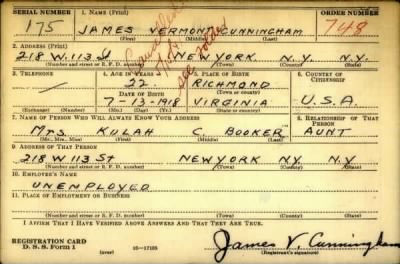 SERIAL NUMBER 1. NAME (Print) ORDER NUMBER
175 JAMES VERMONT CUNNINGHAM 748
(First) (Middle) (Last)
Cancelled
2. ADDRESS (Print)
218 W. 113 St NEW YORK N.Y. N.Y.
(Number and street or R. F. D. number) (Town) (County) (State)
3. TELEPHONE 4. AGE IN YEARS 5. PLACE OF BIRTH 6. COUNTRY OF CITIZENSHIP
22 RICHMOND
DATE OF BIRTH (Town or county)
7-13-1918 VIRGINIA U.S.A.
(Exchange) (Number) (Mo.) (Day) (Yr.) (State or country)
7. NAME OF PERSON WHO WILL ALWAYS KNOW YOUR ADDRESS 8. RELATIONSHIP OF THAT PERSON
Mrs. KULAH C. BOOKER AUNT
(Mr., Mrs., Miss) (First) (Middle) (Last)
9. ADDRESS OF THAT PERSON
218 W 113 St NEW YORK N.Y. N.Y
(Number and street or R. F. D. number) (Town) (County) (State)
10. EMPLOYER'S NAME
UNEMPLOYED
11. PLACE OF EMPLOYMENT OR BUSINESS
(Number and street or R. F. D. number) (Town) (County) (State)
I AFFIRM THAT I HAVE VERIFIED ABOVE ANSWERS AND THAT THEY ARE TRUE.
REGISTRATION CARD
D. S. S. Form 1 16-17105
James V. Cunningham
(Registrant's signature)